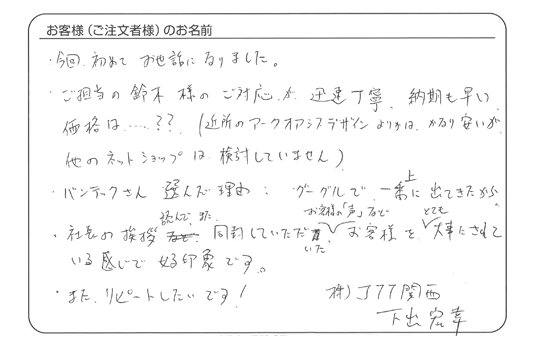 お客様（ご注文者様）のお名前
・今回、初めて お世話になりました。
・ご担当の 鈴木 様の ご対応が 迅速丁寧、納期も早い
価格は……？？（近所のアークオアシスデザインよりかは、かなり安いが、
他のネットショップは 検討していません）
・バンテックさん 選んだ理由： グーグルで、一番上に出てきたから。
・社長の挨拶 読んで、また 同封していただいた お客様の「声」など お客様を とても 大事にされて
いる感じで 好印象です。
・また、リピートしたいです！
株）JTT関西
下出 宏幸